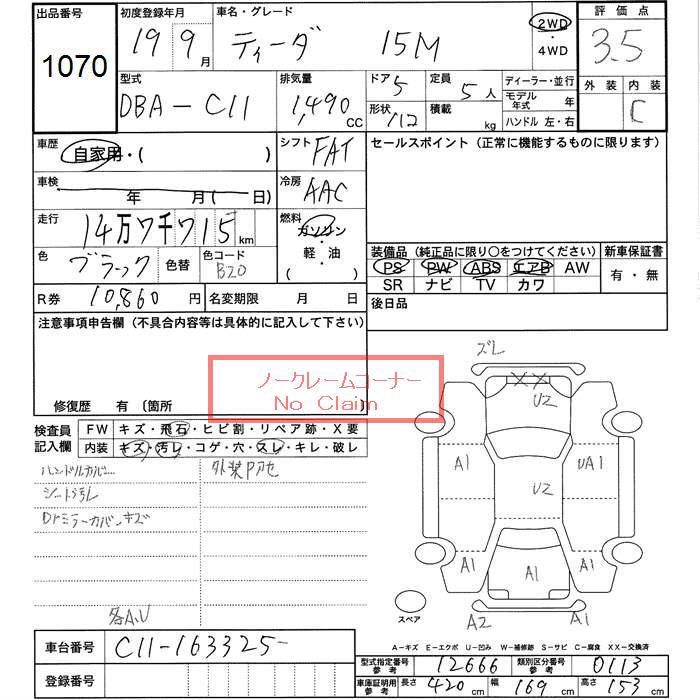 出品番号
1070
初度登録年月
19 9月
車名・グレード
ティーダ 15M
2WD
・
4WD
評価点
3.5
外装 内装
C
型式
DBA-C11
排気量
1,490 CC
ドア 5
形状
定員 5人
積載 kg
ディーラー・並行
モデル年式 年
ハンドル 左・右
車歴
自家用・( )
車検
年 月( 日)
走行
14万7千715km
色
ブラック
色替
色コード
B20
R券 10,860円
名変期限 月 日
シフト
FAT
冷房
AAC
燃料
ガソリン
・
軽・油
( )
セールスポイント(正常に機能するものに限ります)
装備品(純正品に限り○をつけてください)
PS PW ABS エアB AW
SR ナビ TV カワ
新車保証書
有・無
後日品
注意事項申告欄(不具合内容等は具体的に記入して下さい)
ノークレームコーナー
No Claim
修復歴 有 〔箇所
検査員記入欄
FW キズ・飛石・ヒビ割・リペア跡・X要
内装 キズ・汚レ・コゲ・穴・スレ・キレ・破レ
ハンドルカバー
外装Pアセ
シート汚レ
Drミラーカバーキズ
各A,U
ズレ
XX
U2
A1
UA1
U2
A1
A1
A1
A2
A1
スペア
A-キズ E-エクボ U-凹み W-補修跡 S-サビ C-腐食 XX-交換済
車台番号 C11-163325
登録番号
型式指定番号参考 12666
類別区分番号参考 0113
車庫証明用参考 長さ 420cm 幅 169cm 高さ 153cm